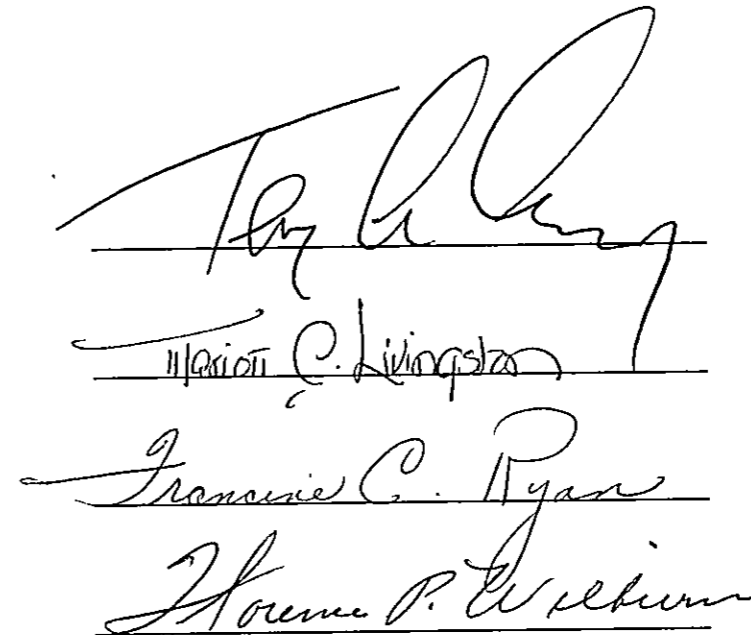 Marion C. Livingston
Francine C. Ryan
Florence P. Wilburn